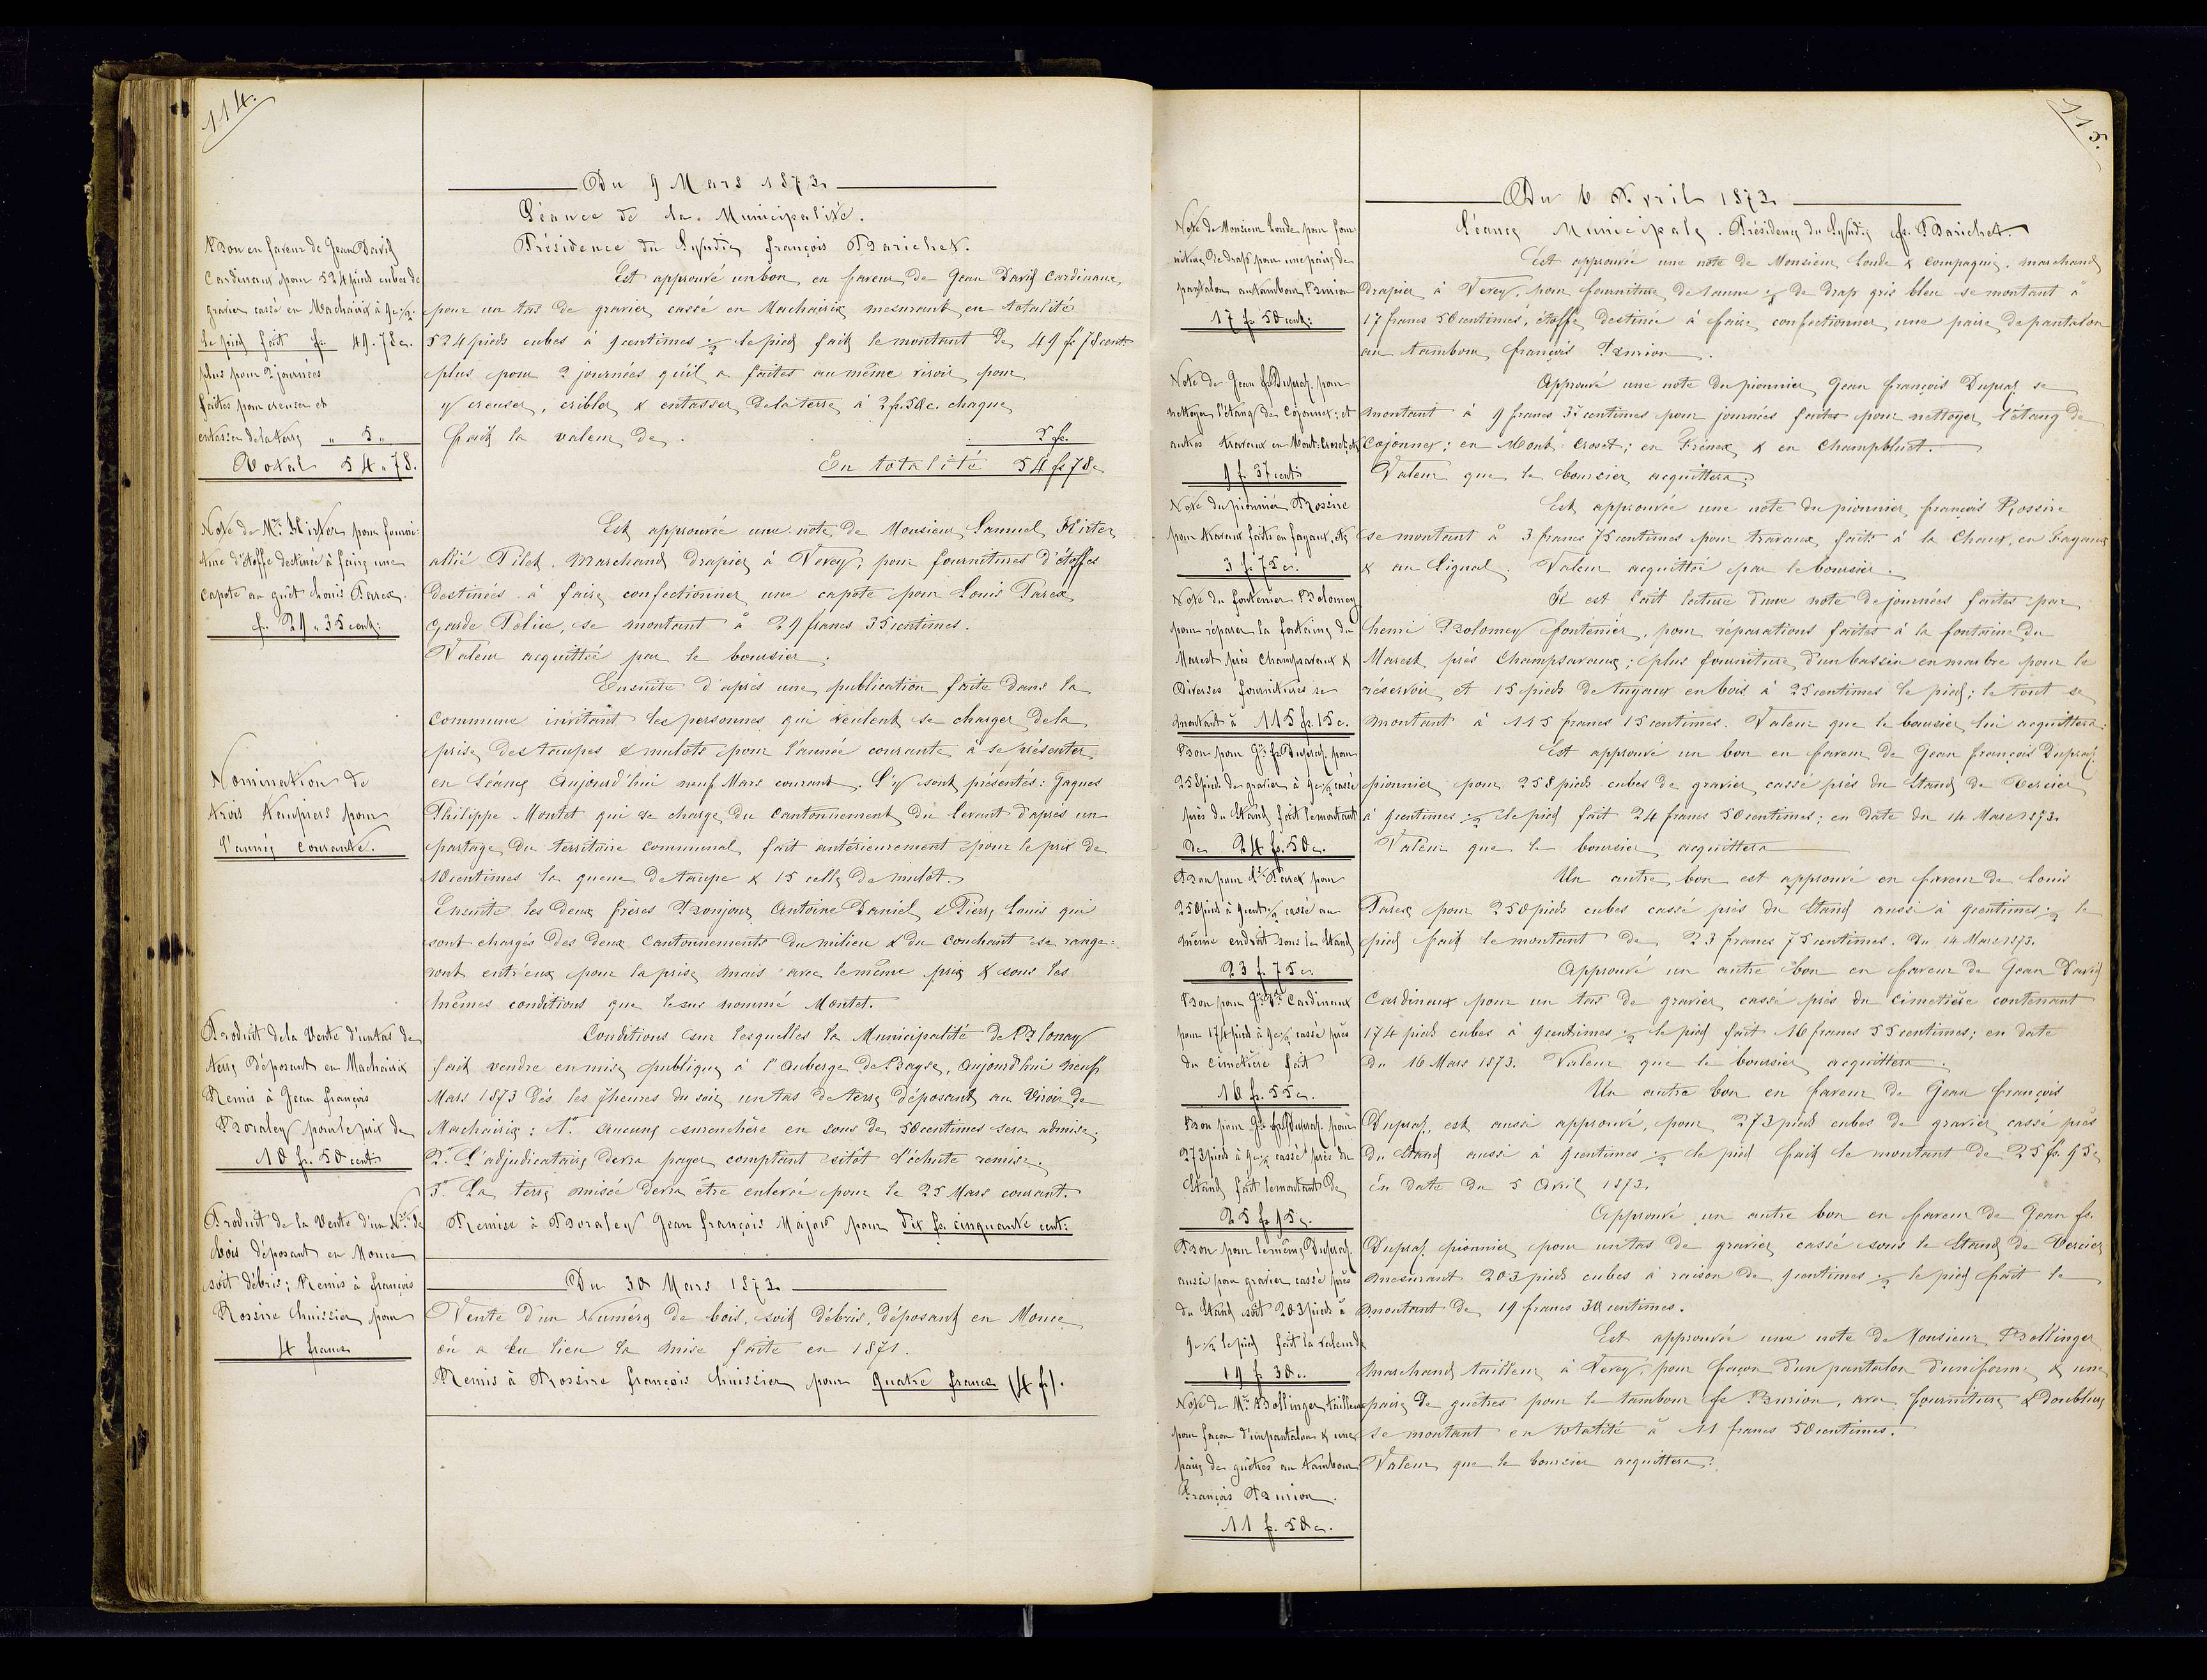 114.
Du 9 Mars 1873.
Séance de la Municipalité.
Présidence du Syndic françois Barichet.
Bon en faveur de Jean David
Cardinaux pour 524 pieds cubes de
gravier cassé en Machairix à 9 c. ½.
le pied fait fr. 49.78 c.
plus pour 2 journées
faites pour creuser et
entasser de la terre " 5 "
Total 54 " 78.
Est approuvé un bon en faveur de Jean David Cardinaux
pour un tas de gravier cassé en Machairix mesurant en totalité
524 pieds cubes à 9 centimes ½ le pied fait le montant de 49 fr 78 cent.
plus pour 2 journées qu'il a faites au même viroir pour
y creuser, cribler & entasser de la terre à 2 fr. 50 c. chaque
fait la valeur de . 5 fr.
En totalité 54 fr 78 c
Note de Mr. Hirter pour fourni-
ture d'étoffe destinée à faire une
capote au guêt Louis Parex.
fr. 29 " 35 cent:
Est approuvée une note de Monsieur Samuel Hirter
allié Pilet, marchand drapier à Vevey, pour fournitures d'étoffes
destinées à faire confectionner une capote pour Louis Parex
garde Police, se montant à 29 francs 35 centimes.
Valeur acquittée par le boursier.
Nomination de
trois taupiers pour
l'année courante.
Ensuite d'après une publication faite dans la
commune invitant les personnes qui veulent se charger de la
prise des taupes & mulots pour l'année courante à se présenter
en séance aujourd'hui neuf Mars courant. S'y sont présentés: Jaques
Philippe Montet qui se charge du cantonnement du levant d'après un
partage du territoire communal fait antérieurement pour le prix de
10 centimes la queue de taupe & 15 celle de mulot.
Ensuite les deux frères Bonjour Antoine Daniel & Pierre Louis qui
sont chargés des deux cantonnements du milieu & du couchant se range-
ront entr'eux pour la prise mais avec le même prix & sous les
mêmes conditions que le sus nommé Montet.
Produit de la Vente d'un tas de
terre déposant en Machairix
Remis à Jean françois
Boraley pour le prix de
10 fr. 50 cent:
Conditions sur lesquelles la Municipalité de Blonay
fait vendre en mise publique à l'auberge de Bayse, aujourd'hui neuf
Mars 1873 dès les 7 heures du soir un tas de terre déposant au Viroir de
Machairix: 1°. Aucune surenchère en sous de 50 centimes sera admise.
2°. L'adjudicataire devra payer comptant sitôt l'échute remise.
3°. La terre misée devra être enlevée pour le 25 Mars courant.
Remise à Boraley Jean françois Major pour dix fr. cinquante cent:
Produit de la Vente d'un No. de
bois déposant en Mouce
soit débris; Remis à françois
Rossire huissier pour
4 francs
Du 30 Mars 1873.
Vente d'un Numéro de bois, soit débris, déposant en Mouce
où a eu lieu la mise faite en 1871.
Remis à Rossire françois huissier pour quatre francs (4 fr).
115.
Du 6 Avril 1873.
Séance Municipale. Présidence du Syndic fr. Barichet.
Note de Monsieur Londe pour four-
niture de drap pour une paire de
pantalon au tambour Burion
17 fr 50 cent:
Est approuvée une note de Monsieur Londe & Compagnie, marchand
drapier à Vevey, pour fourniture de 1 aune ½ de drap gris bleu se montant à
17 francs 50 centimes, étoffe destinée à faire confectionner une paire de pantalon
au tambour françois Burion.
Note de Jean fs Dupraz, pour
nettoyer l'étang de Cojonnex; et
autres travaux en Mont-Croset, etc.
9 f. 37 cent:
Approuvé une note du pionnier Jean françois Dupraz se
montant à 9 francs 37 centimes pour journées faites pour nettoyer l'étang de
Cojonnex; en Mont-Croset; en Frénex & en Champbluet.
Valeur que le boursier acquittera.
Note du pionnier Rossire
pour travaux faits en Fayaux, etc.
3 f. 75 c.
Est approuvée une note du pionnier françois Rossire
se montant à 3 francs 75 centimes pour travaux faits à la Chaux, en Fayaux
& au Signal. Valeur acquittée par le boursier.
Note du fontenier Bolomey
pour réparer la fontaine du
Marest près Champsavaux &
diverses fournitures se
montant à 115 fr. 15 c.
Il est fait lecture d'une note de journées faites par
henri Bolomey fontenier, pour réparations faites à la fontaine du
Marest près Champsavaux; plus fourniture d'un bassin en marbre pour le
réservoir et 15 pieds de tuyaux en bois à 25 centimes le pied; le tout se
montant à 115 francs 15 centimes. Valeur que le boursier lui acquittera.
Bon pour Jn fs Dupraz, pour
258 pieds de gravier à 9 c. ½ cassé
près du Stand fait le montant
de 24 fr. 50 c.
Est approuvé un bon en faveur de Jean françois Dupraz
pionnier pour 258 pieds cubes de gravier cassé près du Stand de Vercier
à 9 centimes ½ le pied fait 24 francs 50 centimes; en date du 14 Mars 1873.
Valeur que le boursier acquittera
Bon pour Ls Parex pour
250 pieds à 9 cent: ½ cassé au
même endroit sous le Stand
23 f. 75 c.
Un autre bon est approuvé en faveur de Louis
Parex pour 250 pieds cubes cassé près du Stand aussi à 9 centimes ½ le
pied fait le montant de 23 francs 75 centimes. Du 14 Mars 1873.
Bon pour Jn Dd Cardinaux
pour 174 pieds à 9 c. ½ cassé près
du cimetière fait
16 fr. 55 c.
Approuvé un autre bon en faveur de Jean David
Cardinaux pour un tas de gravier cassé près du cimetière contenant
174 pieds cubes à 9 centimes ½ le pied fait 16 francs 55 centimes; en date
du 16 Mars 1873. Valeur que le boursier acquittera.
Bon pour Jn fs Dupraz, pour
273 pieds à 9 c. ½ cassé près du
Stand fait le montant de
25 fr 95 c.
Un autre bon en faveur de Jean françois
Dupraz, est aussi approuvé, pour 273 pieds cubes de gravier cassé près
du Stand aussi à 9 centimes ½ le pied fait le montant de 25 fr. 95 c
en date du 5 Avril 1873.
Bon pour le même Dupraz
aussi pour gravier cassé près
du Stand soit 203 pieds à
9 c. ½ le pied fait la valeur de
19 f 30 c.
Approuvé un autre bon en faveur de Jean fs.
Dupraz, pionnier pour un tas de gravier cassé sous le Stand de Vercier
mesurant 203 pieds cubes à raison de 9 centimes ½ le pied fait le
montant de 19 francs 30 centimes.
Note de Mr. Bollinger tailleur
pour façon d'un pantalon & une
paire de guêtres au tambour
françois Burion.
11 fr. 50 c.
Est approuvée une note de Monsieur Bollinger
marchand tailleur à Vevey, pour façon d'un pantalon d'uniforme & une
paire de guêtres pour le tambour fs Burion, avec fourniture & doublure
se montant en totalité à 11 francs 50 centimes.
Valeur que le boursier acquittera.